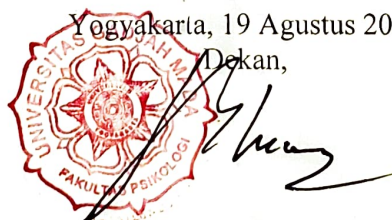 Yogyakarta, 19 Agustus 20
Dekan,
UNIVERSITAS GADJAH MADA
FAKULTAS PSIKOLOGI